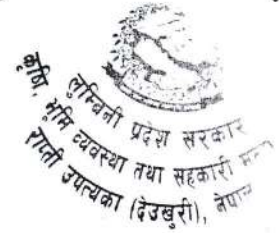 लुम्बिनी प्रदेश सरकार
कृषि, भूमि व्यवस्था तथा सहकारी
राप्ती उपत्यका (देउखुरी), नेपाल